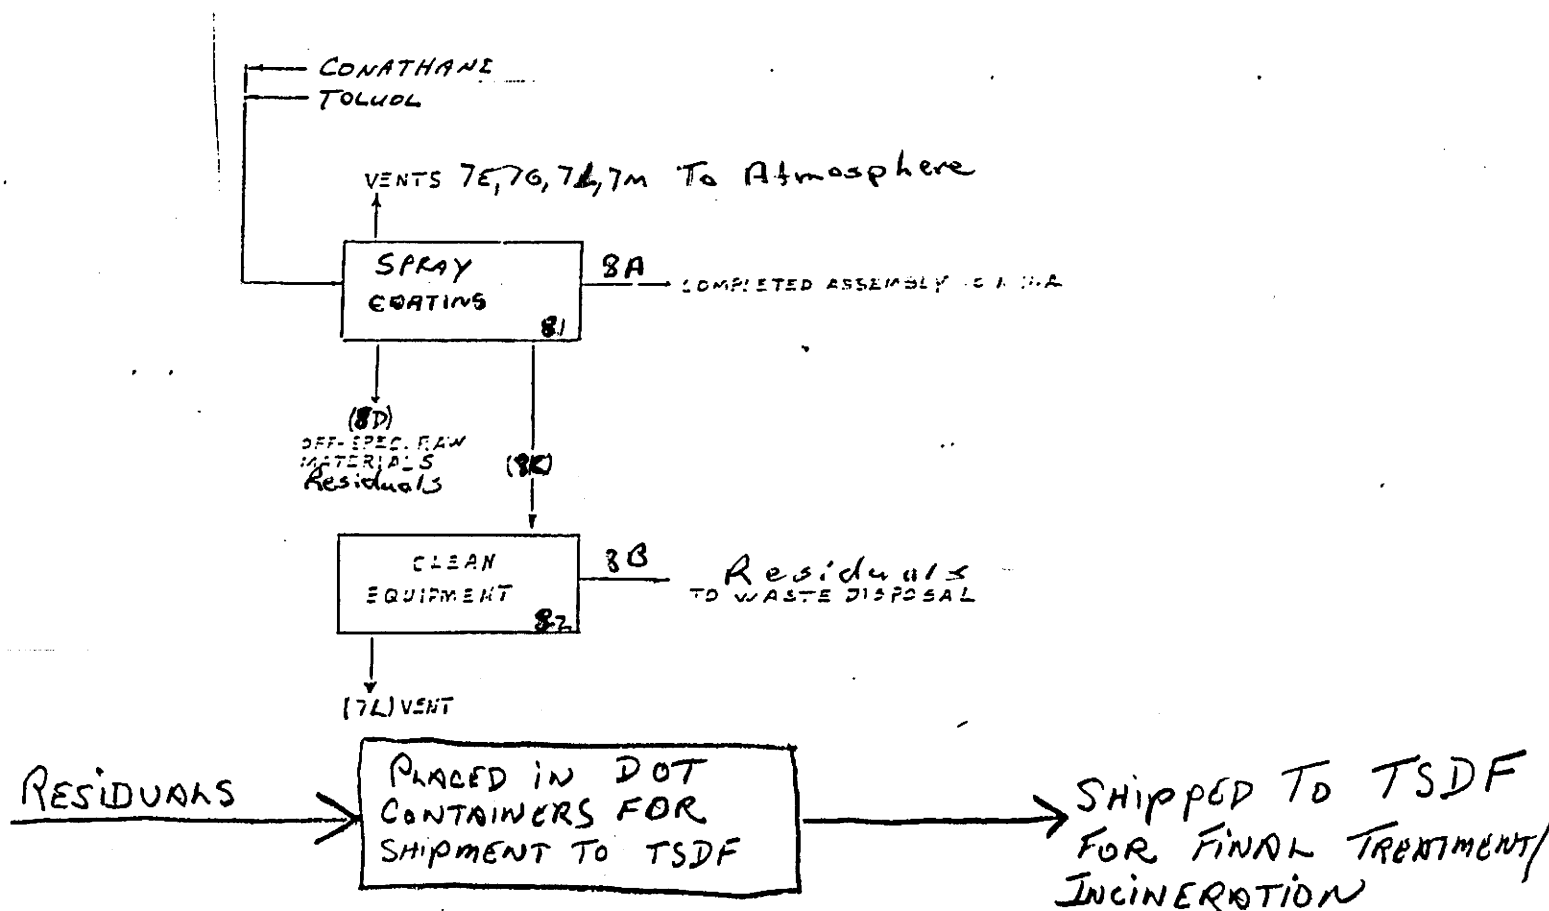 CONATHANE
TOLUOL
VENTS 7E, 7G, 7L, 7M To Atmosphere
SPRAY
COATING
81
8A
COMPLETED ASSEMBLY
(8D)
OFF-SPEC. RAW
MATERIALS
Residuals
CLEAN
EQUIPMENT
82
8B
Residuals
TO WASTE DISPOSAL
(7L) VENT
RESIDUALS
PLACED IN DOT
CONTAINERS FOR
SHIPMENT TO TSDF
SHIPPED TO TSDF
FOR FINAL TREATMENT/
INCINERATION